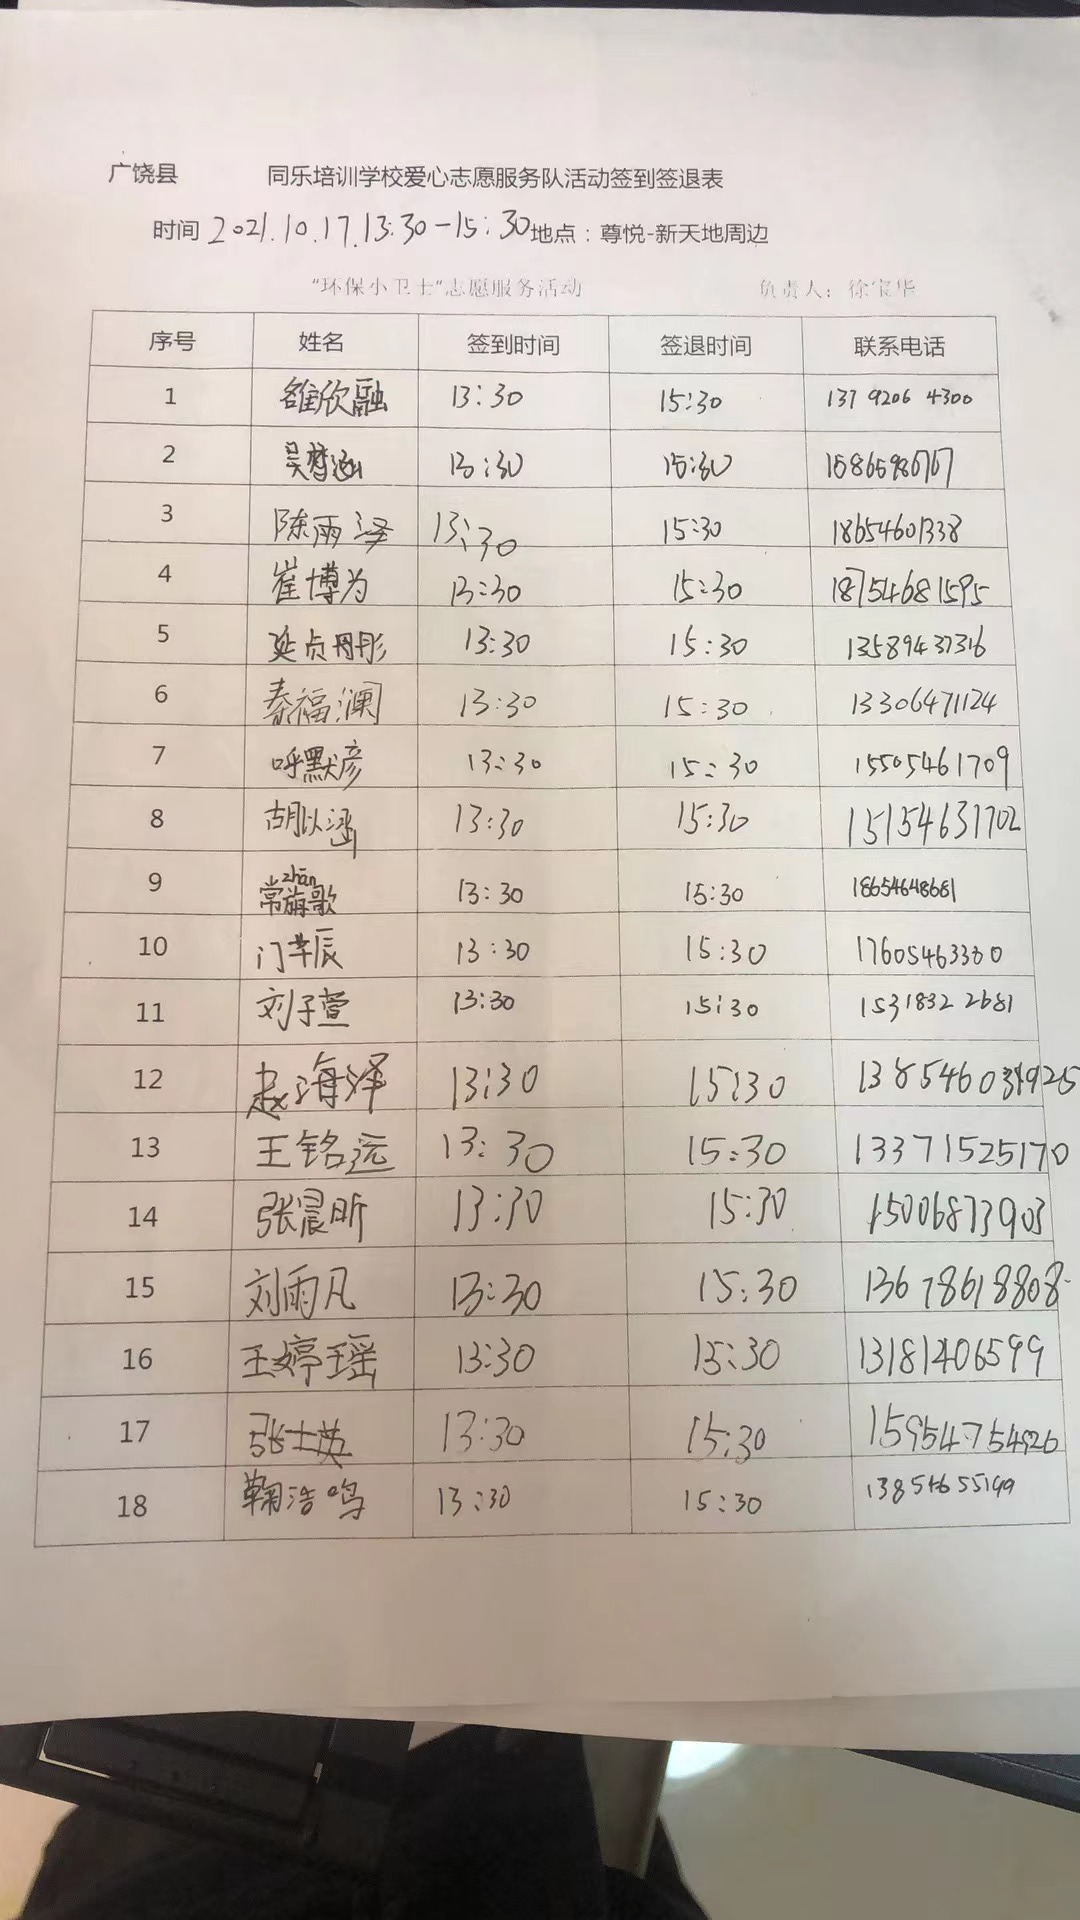 广饶县 同乐培训学校爱心志愿服务队活动签到签退表
时间 2021.10.17.13:30-15:30 地点：尊悦-新天地周边
“环保小卫士”志愿服务活动 负责人：徐宝华
序号 姓名 签到时间 签退时间 联系电话
1 雒欣融 13:30 15:30 137 9206 4300
2 13:30 15:30
3 陈雨泽 13:30 15:30 18654601338
4 崔博为 13:30 15:30 18754681595
5 延贞彤 13:30 15:30 13589437316
6 秦福澜 13:30 15:30 13306471124
7 呼默彦 13:30 15:30 15505461709
8 胡以涵 13:30 15:30 15154631702
9 常旃zhān歌 13:30 15:30 18654648681
10 门芊辰 13:30 15:30 17605463380
11 刘子萱 13:30 15:30 1531832 2681
12 赵海泽 13:30 15:30
13 王铭远 13:30 15:30 13371525170
14 张晨昕 13:30 15:30 15006873903
15 刘雨凡 13:30 15:30 13678618808
16 王婷瑶 13:30 15:30 13181406599
17 张士英 13:30 15:30 15954754926
18 鞠浩鸣 13:30 15:30 13854655199